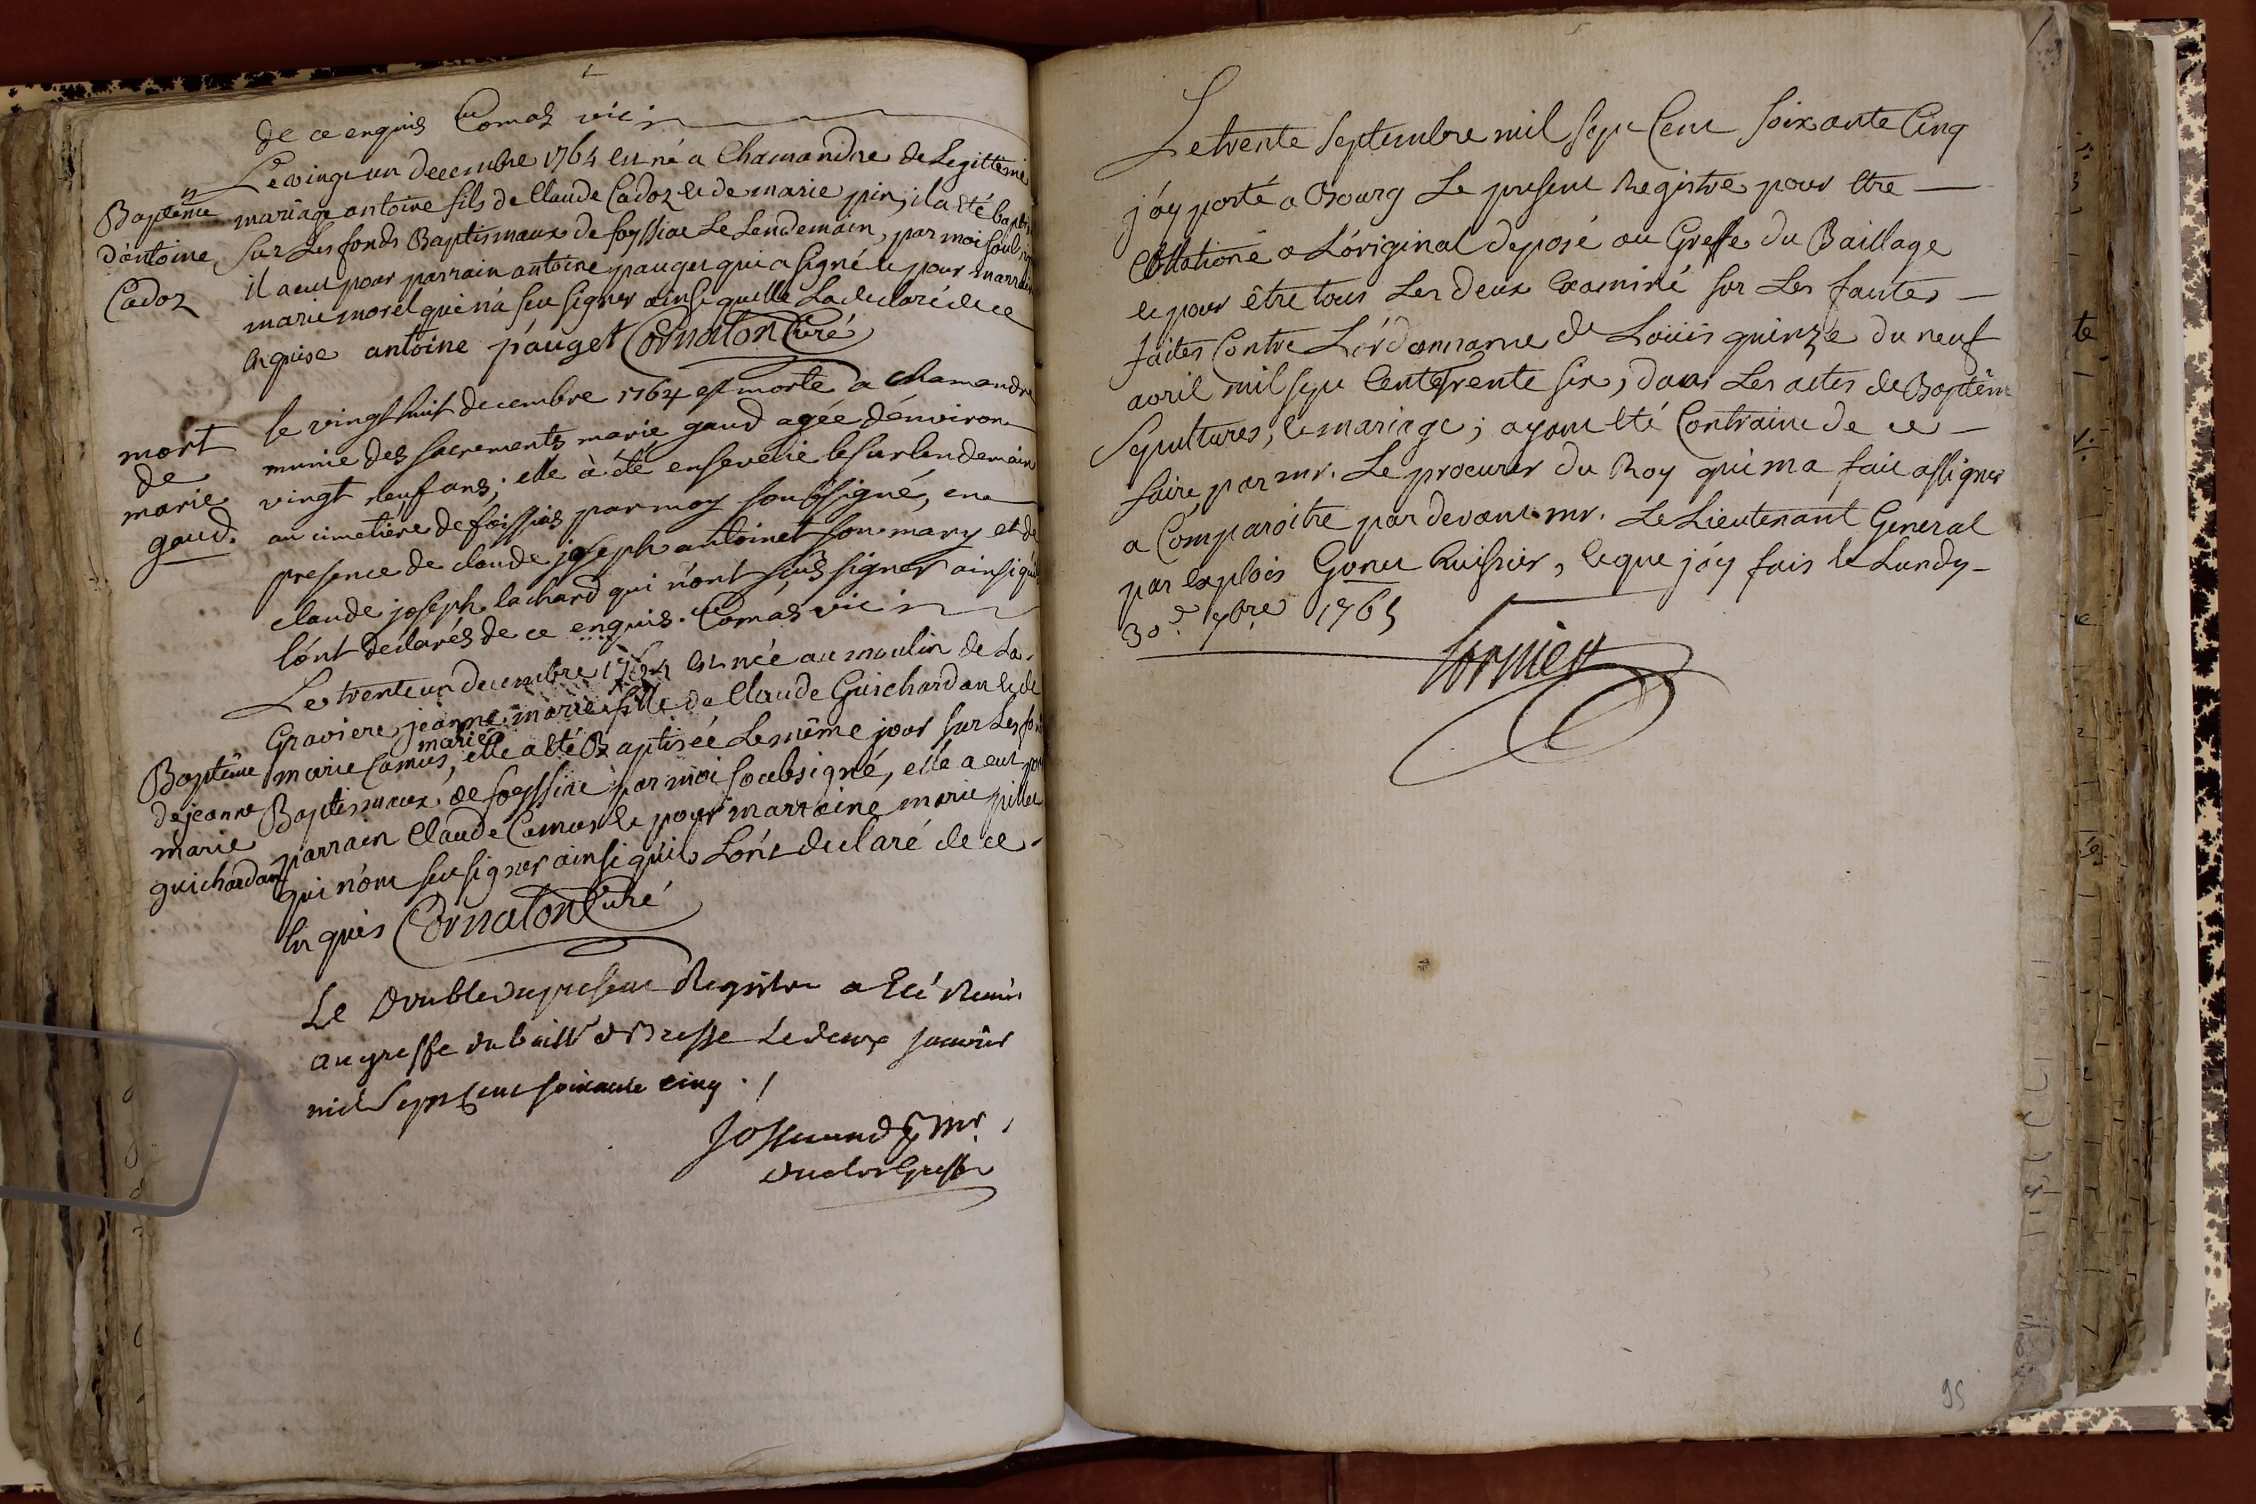 de ce enquis Comas vic
Le vingt un decembre 1764 est né a Chamandre de Legittime
mariage antoine fils de Claude Cadoz et de marie pin; il a été baptisé
sur Les fonds Baptismaux de foissiae Le Lendemain, par moi soubsigné
il a eut pour parrain antoine pauget qui a signé et pour marraine
marie morel qui n'a sceu signer ainsi quelle La declaré de ce
enquise antoine páuget Cornaton Curé
Baptême
d'antoine
Cadoz
le vingt huit decembre 1764 est morte a chamandre
munie des sacrements marie gaud agée d'énviron
vingt neuf ans; elle à été ensevelie le surlendemain
au cimetière de foissias par moy soubsigné, en
presence de claude joseph antoinet son mary et de
claude joseph lachard qui n'ont sçus signer ainsi qu'ils
l'ont déclarés de ce enquis. Comas vic
mort
de
marie
gaud.
Le trente un decembre 1764 est née au moulin de La
Graviere jeanne marie fille de Claude Guichardan et de
marie
marie Camus, elle a été Baptisée Le même jour sur Les fonds
Baptismaux de foyssiae par moi soubsigné, elle a eut pour
parrain Claude Camus et pour marraine marie pillet
qui n'ont sceu signer ainsi qu'ils L'ont declaré de ce
enquis Cornaton Curé
Baptême
de jeanne
marie
guichardan
Le Double du present Registre a Eté Remis
au greffe du baill. de Bresse Le deux janvier
mil Sept Cent soixante cinq ./
Le trente Septembre mil sept Cent soixante Cinq
j'áy porté a Bourg Le present Registre pour être
Collationé a L'original deposé au Greffe du Baillage
et pour être tous Les deux Examiné sur Les fautes
faites Contre L'órdonnanne de Loüis quinze du neuf
avril mil sept Cent Trente six, dans Les actes de Baptêm
Sepultures, et mariage; ayant été Contraint de ce
faire, par mr. Le procurer du Roy qui ma fait assigner
a Comparoitre par devant mr. Le Lieutenant General
par explois Gonet huissier, ce que j'áy fais le Lundy
30e. 7bre 1765
95